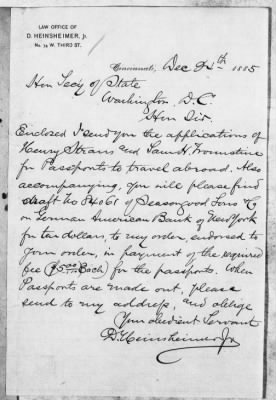 LAW OFFICE OF
D. HEINSHEIMER, Jr.
No. 74 W. THIRD ST.
Cincinnati, Dec 24th 1885
Hon Secy of State
Washington D.C.
Hon Sir.
Enclosed I send you the applications of
Henry Straus and Saml H. Fromstine
for Passports to travel abroad. Also
accompanying, you will please find
draft No 84861 of Seasongood Sons & Co
on German American Bank of New York
for ten dollars, to my order, endorsed to
your order, in payment of the required
fee ($5.00 Each) for the passports. When
Passports are made out, please
send to my address, and oblige
Your obedient Servant
D. Heinsheimer Jr